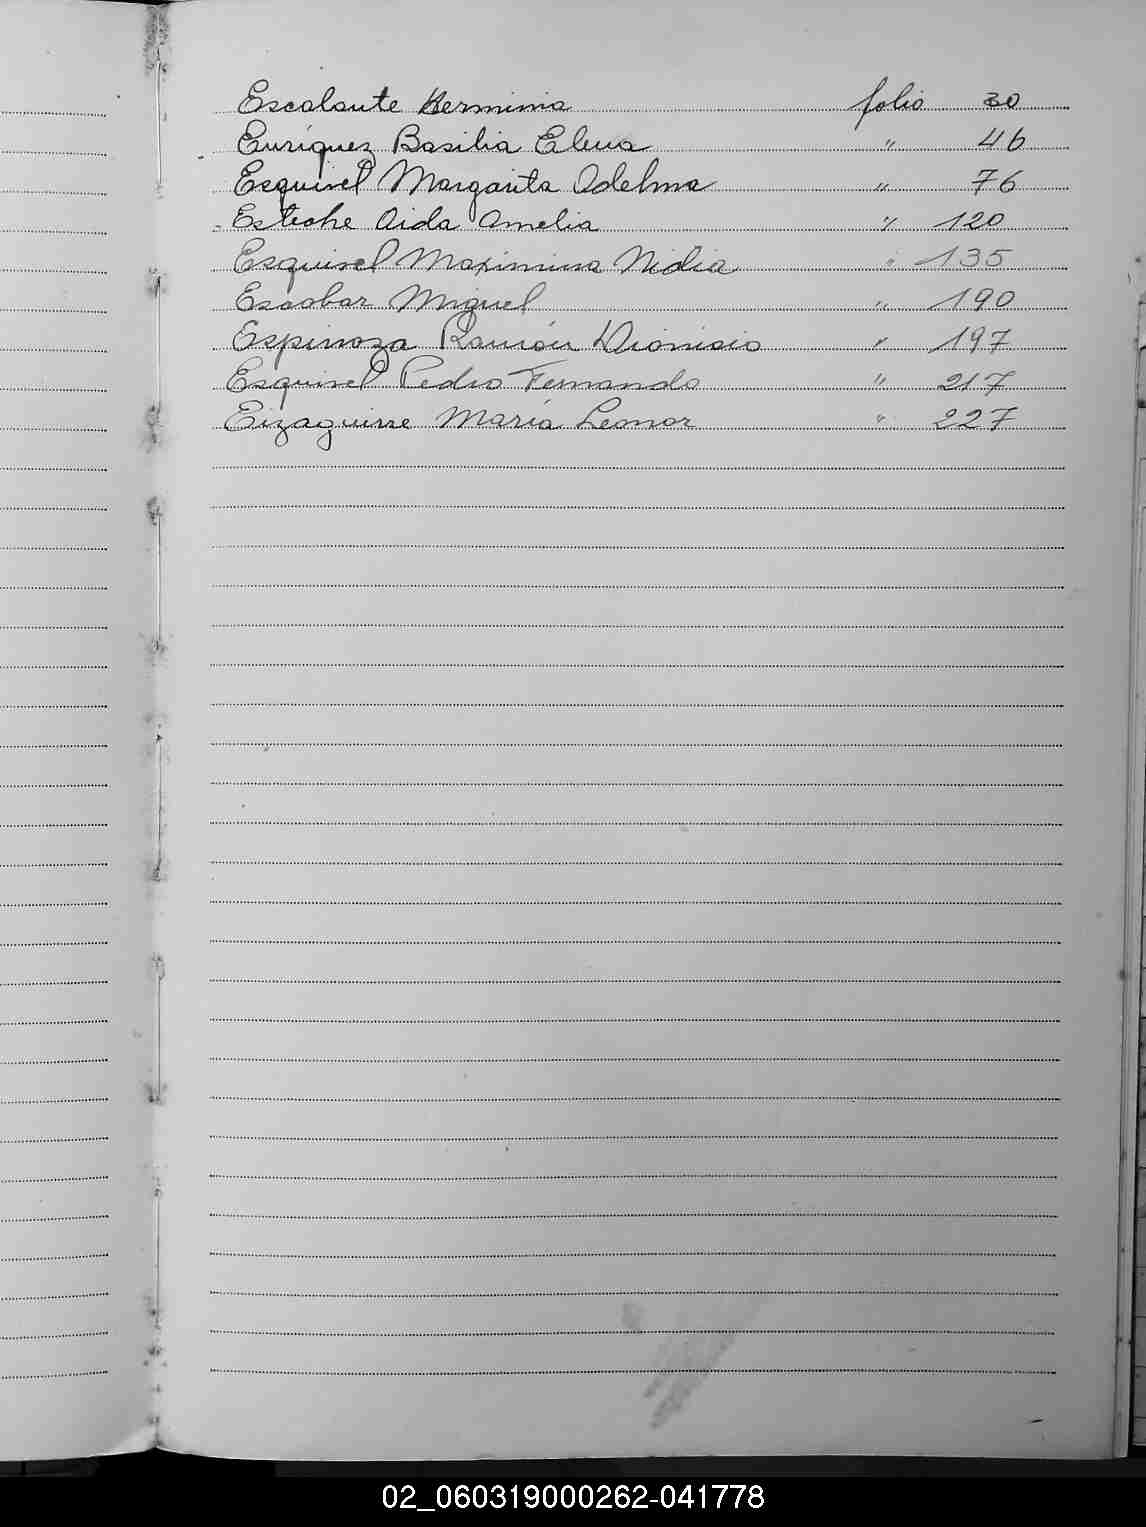 Escalante Herminia folio 30
Enriquez Basilia Elena " 46
Esquivel Margarita Adelma " 76
Esteche Aida Amelia " 120
Esquivel Maximina Nidia " 135
Escobar Miguel " 190
Espinoza Ramón Dionisio " 197
Esquivel Pedro Fernando " 217
Eizaguirre María Leonor " 227
02_060319000262-041778